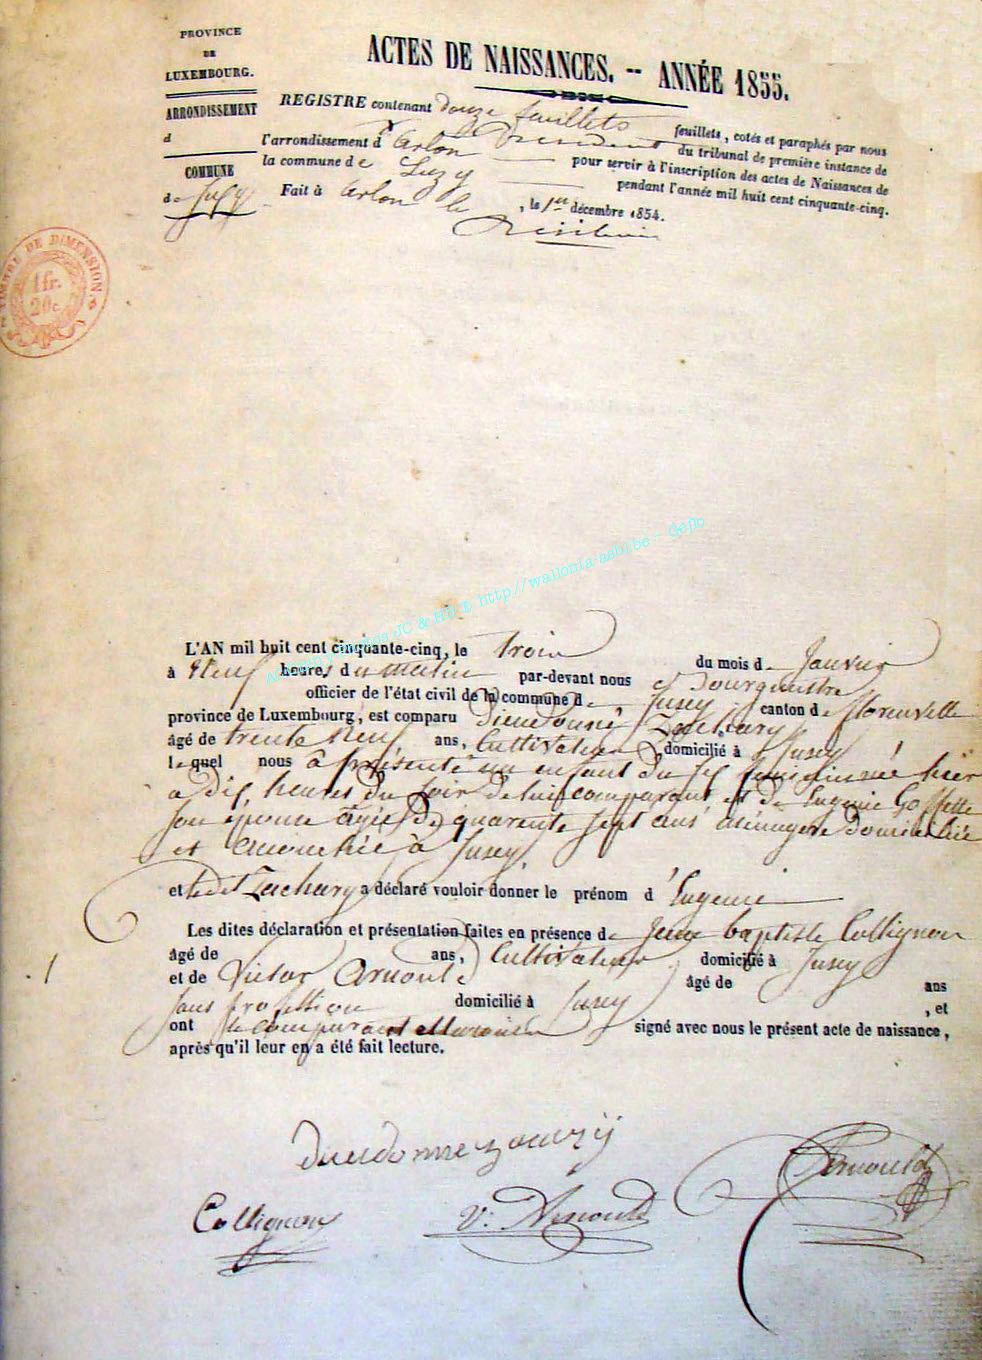 PROVINCE
DE
LUXEMBOURG.
ARRONDISSEMENT
d
COMMUNE
de Jusey
ACTES DE NAISSANCES. -- ANNÉE 1855.
REGISTRE contenant douze feuillets feuillets, cotés et paraphés par nous
président du tribunal de première instance de
l'arrondissement d'Arlon pour servir à l'inscription des actes de Naissances de
la commune de Suzy pendant l'année mil huit cent cinquante-cinq.
Fait à Arlon le , le 1er décembre 1854.
TIMBRE DE DIMENSION
1fr.
20c.
photos JC & HB © http//wallonia-asbl.be - Gefb
L'AN mil huit cent cinquante-cinq, le trois du mois de Janvier
à Neuf heures du matin par-devant nous Bourgmestre
officier de l'état civil de la commune de Jusey canton de florenville
province de Luxembourg, est comparu Dieudonné Zachary
âgé de trente Neuf ans, Cultivateur domicilié à Jusey
lequel nous a présenté un enfant du sexe féminin né hier
a dix heures du soir de lui comparant et de Eugenie Goffette
son épouse âgée de quarante sept ans ménagère domiciliée
et accouchée à Jusey,
et ledit Zachary a déclaré vouloir donner le prénom d'Eugenie
Les dites déclaration et présentation faites en présence de Jean baptiste Collignon
âgé de ans, Cultivateur domicilié à Jusey
1 et de Victor Arnould âgé de ans
sans profession domicilié à Jusey , et
ont le comparant et témoins signé avec nous le présent acte de naissance,
après qu'il leur en a été fait lecture.
dieudonne zacary
Collignon V. Arnould Arnould